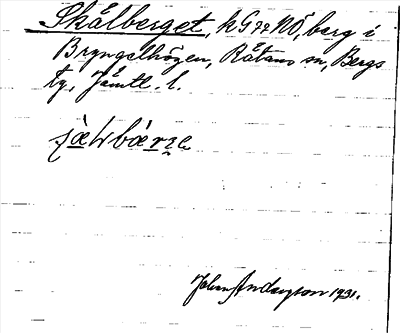 Skålberget, kG22NÖ, berg i
Bryngelhögen, Rätans sn, Bergs
tg, Jämtl. l.
Johan Andersson 1931.